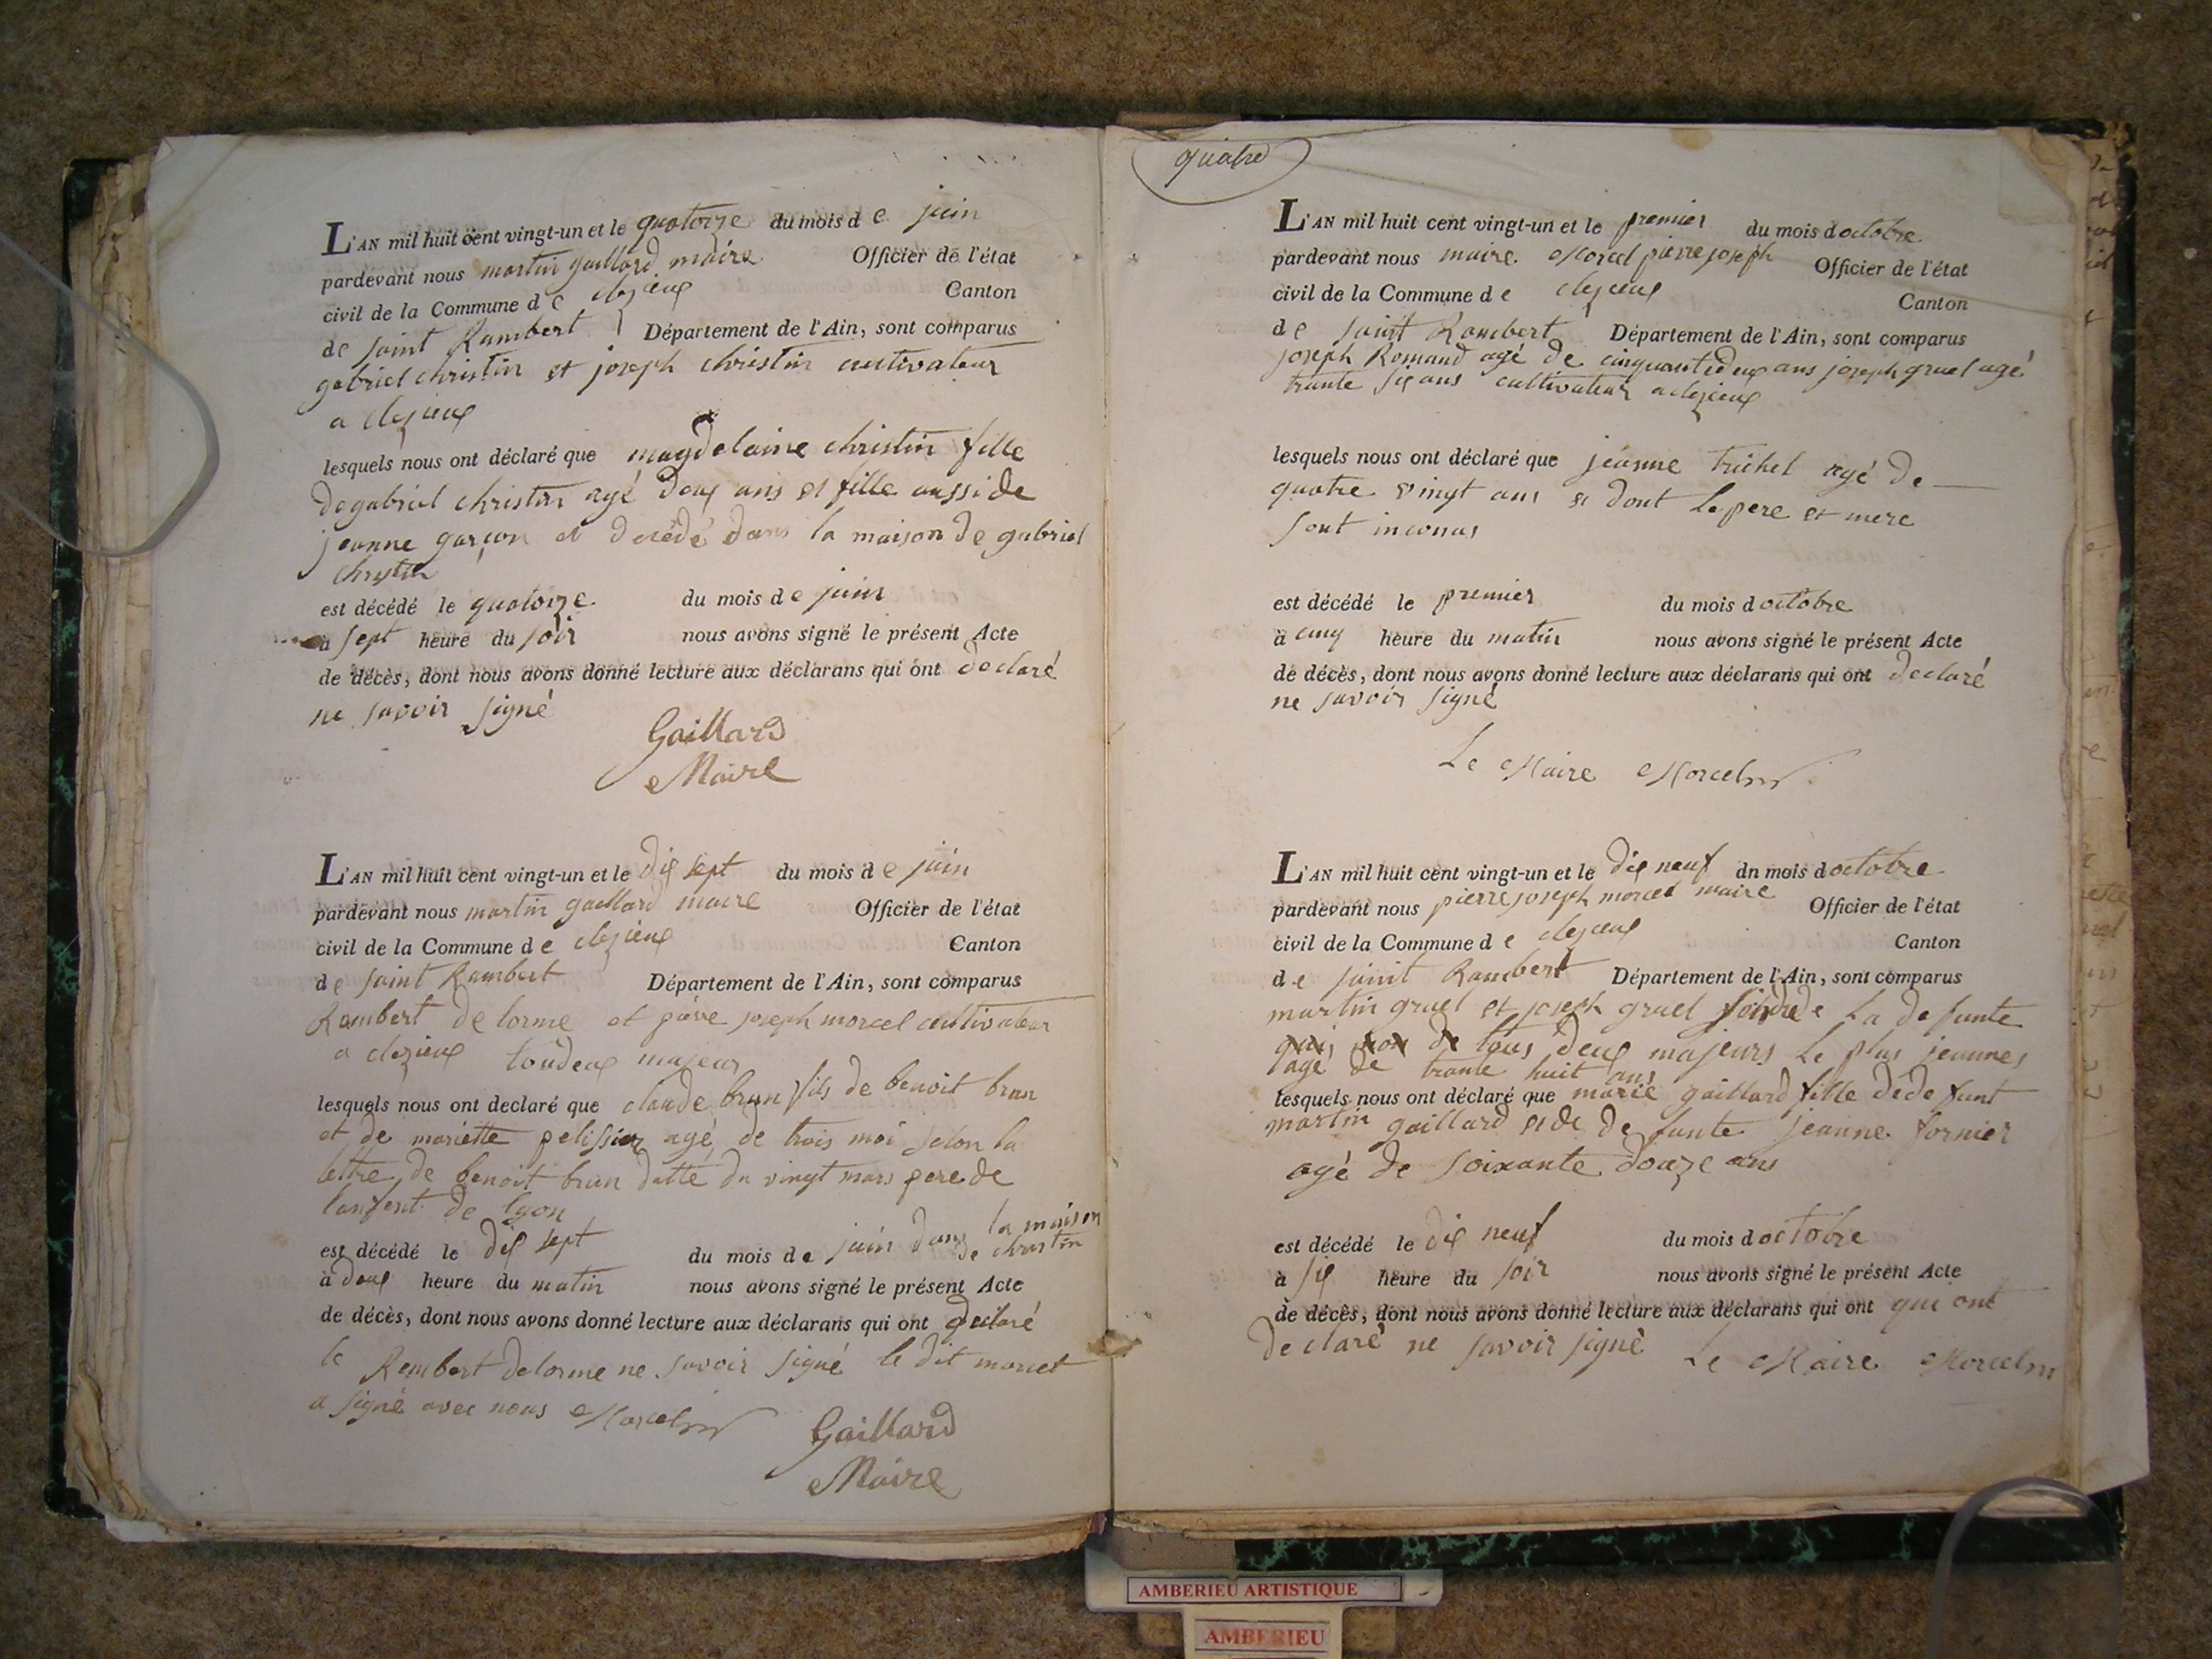 L'AN mil huit cent vingt-un et le quatorze du mois de juin
pardevant nous martin gaillard maire Officier de l'état
civil de la Commune de clezieux Canton
de saint Rambert Département de l'Ain, sont comparus
gabriel christin et joseph christin cultivateur
a clezieux
lesquels nous ont déclaré que magdelaine christin fille
de gabriel christin agé deux ans et fille aussi de
jeanne garçon et décédé dans la maison de gabriel
christin
est décédé le quatorze du mois de juin
a sept heure du soir nous avons signé le présent Acte
de décès, dont nous avons donné lecture aux déclarans qui ont declaré
ne savoir signé
Gaillard
Maire
L'AN mil huit cent vingt-un et le dix sept du mois de juin
pardevant nous martin gaillard maire Officier de l'état
civil de la Commune de clezieux Canton
de saint Rambert Département de l'Ain, sont comparus
Rambert delorme et pierre joseph morcel cultivateur
a clezieux toudeux majeur
lesquels nous ont declaré que claude brun fils de benoit brun
et de mariette pelissier agé de trois moi selon la
lettre de benoit brun datté du vingt mars pere de
lanfent de lyon
est décédé le dix sept du mois de juin dans la maison
de christin
à deux heure du matin nous avons signé le présent Acte
de décès, dont nous avons donné lecture aux déclarans qui ont déclaré
le Rembert delorme ne savoir signé le dit morcel
a signé avec nous Morcel Gaillard
Maire
quatre
L'AN mil huit cent vingt-un et le premier du mois d octobre
pardevant nous maire Morcel pierre joseph Officier de l'état
civil de la Commune de clezieux Canton
de saint Rambert Département de l'Ain, sont comparus
joseph Romand agé de cinquante deux ans joseph gruel agé
trante six ans cultivateur a clezieux
lesquels nous ont déclaré que jeanne truchet agé de
quatre vingt ans et dont le pere et mere
sont inconus
est décédé le premier du mois d octobre
à cinq heure du matin nous avons signé le présent Acte
de décès, dont nous avons donné lecture aux déclarans qui ont declaré
ne savoir signé
Le Maire Morcel
L'AN mil huit cent vingt-un et le dix neuf dn mois d octobre
pardevant nous pierre joseph morcel maire Officier de l'état
civil de la Commune de clezieux Canton
de saint Rambert Département de l'Ain, sont comparus
martin gruel et joseph gruel de la defunte
tous deux majeurs le plus jeunnes
agé de trante huit ans
lesquels nous ont déclaré que marie gaillard fille de defunt
martin gaillard et de defunte jeanne fornier
agé de soixante douze ans
est décédé le dix neuf du mois d octobre
à six heure du soir nous avons signé le présent Acte
de décès, dont nous avons donné lecture aux déclarans qui ont qui ont
declaré ne savoir signé Le Maire Morcel
AMBERIEU ARTISTIQUE
AMBERIEU